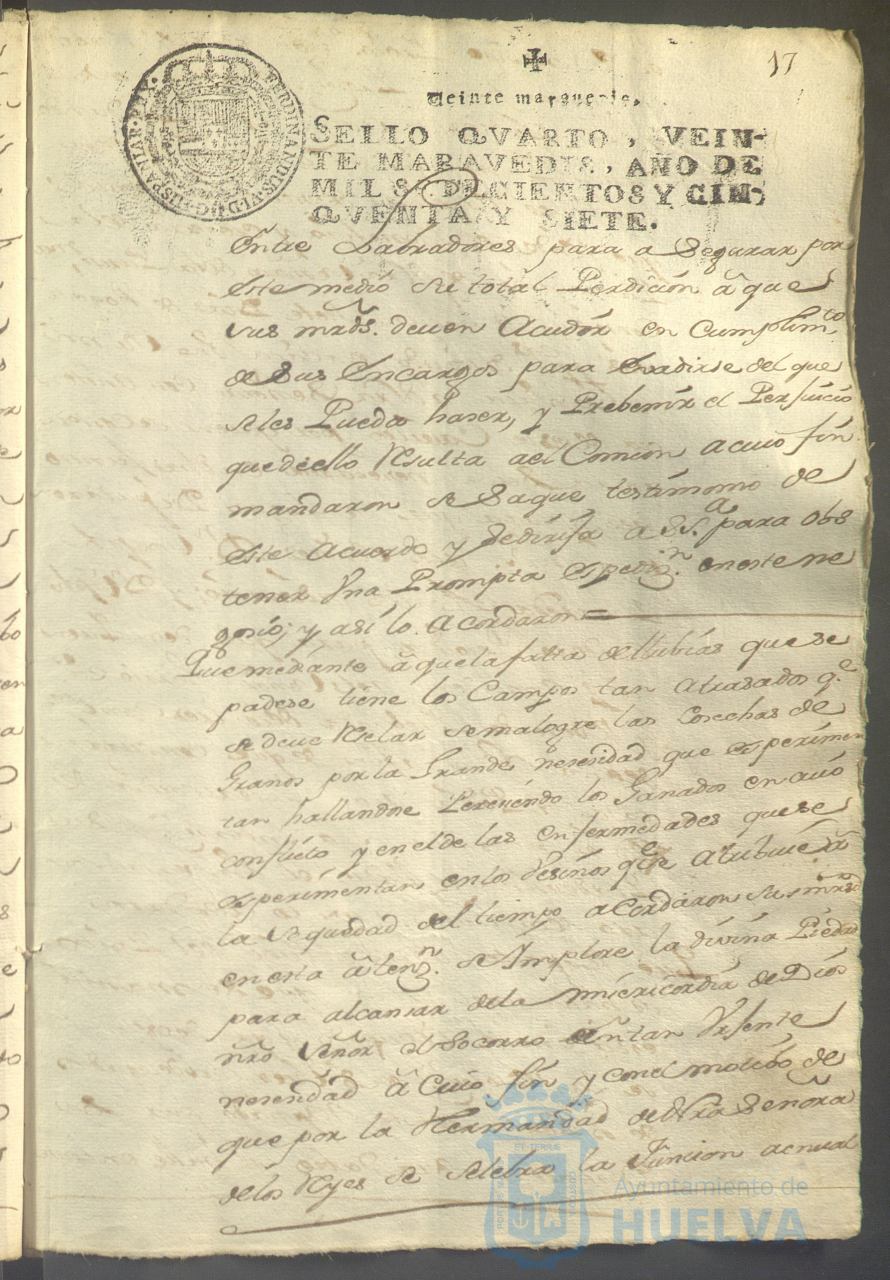 17
Veinte maravedis.
SELLO QVARTO, VEIN-
TE MARAVEDIS, AÑO DE
MIL SETECIENTOS Y CIN-
QVENTA Y SIETE.
FERDINANDUS·VI·D·G·HISPANIAR·REX·
Entre Labradores para a Segurar por
este medio su total Perdicion â que
sus mrds. deven Acudir en Cumplimto
de Sus Encargos para Evadirse del que
seles Pueda haser, y Prebenir el Perjuicio
que de ello Resulta ael Comun a cuio fin
mandaron se Saque testimonio de
este Acuerdo y Se dirija a S.Sa. para obs
tener Una Prompta espedizn. en este ne
gosio; y asi lo Acordaron =
Que mediante â que la falta de llubias que se
padese tiene los Campos tan atrasados qe.
se deve Reselar se malogre las Cosechas de
Granos por la Grande nesesidad que esperimen
tan hallandose Pereciendo los Ganados en cuio
conflicto y en el de las enfermedades que se
esperimentan en los Vesinos que atribuie â
la sequedad del tiempo acordaron sus mrds
en esta âtenzn. se Implore la divina Piedad
para alcansar de la misericordia de Dios
nro Señor el Socorro en tan Urjente
nesesidad â Cuio fin y con el motibo de
que por la Hermandad de Nra Señora
de los Reyes se Selebra la Funcion acnual
Ayuntamiento de
HUELVA